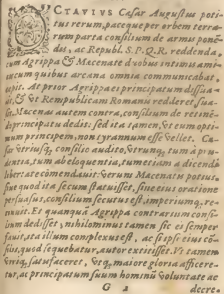 OCTAVIVS Cæsar Augustus poti-
tus rerum, pace que per orbem terra-
rum parta consilium de armis ponen
dis, ac Republ. S. P. Q. R. reddenda,
cum Agrippa & Mæcenate duobus intimis ami-
cis cum quibus arcana omnia communicabat,
cepit. At prior Agrippa ei principatum dissua-
sit, & ut Rempublicam Romanis redderet, sua-
sit. Mæcenas autem contra, consilium de retinen-
do principatu dedit: sed ita tamen, ut eum opti-
mum principem, non tyrannum esse velles. Cæ-
sar utriusq; consilio audito, utrumq; tum à pru-
dentia, tum ab eloquentia, tum etiam à dicendi
libertate commendauit. Verum Mæcenatis potius
siue quod ita secum statuisset, siue eius oratione
persuasus, consilium secutus est, imperiumq; re-
tinuit. Et quanquā Agrippa contrarium consi-
lium dedisset, nihilominus tamen sic eo semper
fauit, ista illum complexus est, ac si ipsi eius cō-
silio, quod sequebatur, autor extitisset. Vt tamen
utriq; satisfaceret, utq; maiore gloria afficere-
tur, ac principatum suum homines voluntate ac
G 2 decre-